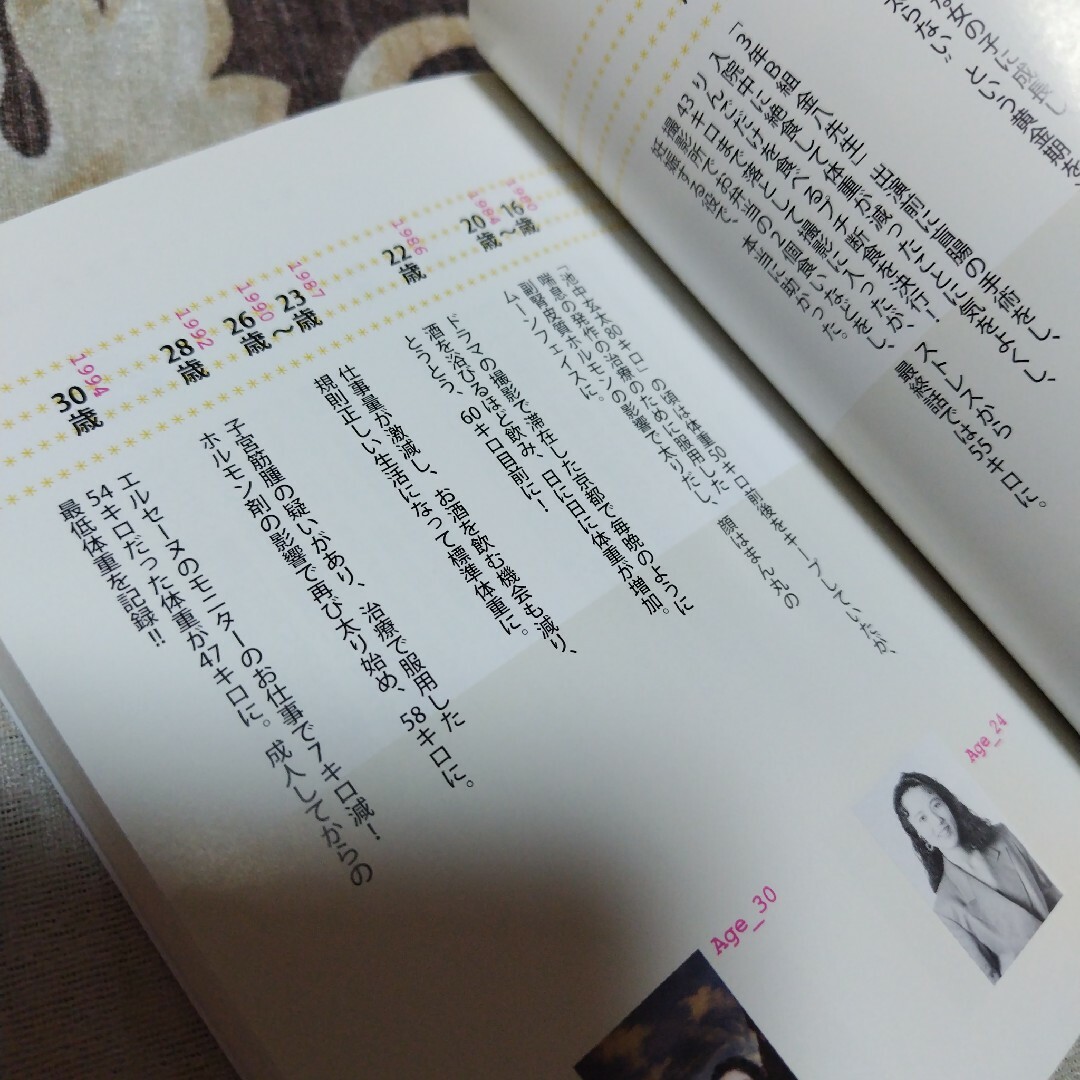 女の子に成長し
太らない〟という黄金期を
「3年B組金八先生」出演前に盲腸の手術をし、
入院中に絶食して体重が減ったことに気をよくし、
りんごだけを食べるプチ断食を決行！
43キロまで落として撮影に入ったが、ストレスから
撮影所でお弁当の2個食いなどをし、最終話では55キロに。
妊娠する役で、本当に助かった。
1980
16歳〜
1984
20歳
「池中玄太80キロ」の頃は体重50キロ前後をキープしていたが、
喘息の発作の治療のために服用した
副腎皮質ホルモンの影響で太りだし、顔はまん丸の
ムーンフェイスに。
1986
22歳
ドラマの撮影で滞在した京都で毎晩のように
酒を浴びるほど飲み、日に日に体重が増加。
とうとう、60キロ目前に！
1987
23歳〜
1990
26歳
仕事量が激減し、お酒を飲む機会も減り、
規則正しい生活になって標準体重に。
1992
28歳
子宮筋腫の疑いがあり、治療で服用した
ホルモン剤の影響で再び太り始め、58キロに。
1994
30歳
エルセーヌのモニターのお仕事で7キロ減！
54キロだった体重が47キロに。成人してからの
最低体重を記録!!
Age_24
Age_30